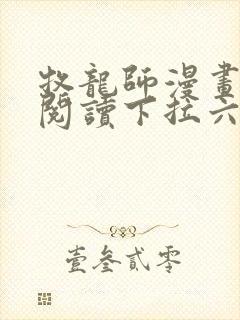 牧龍師漫畫
閱讀下拉六
壹叁貳零